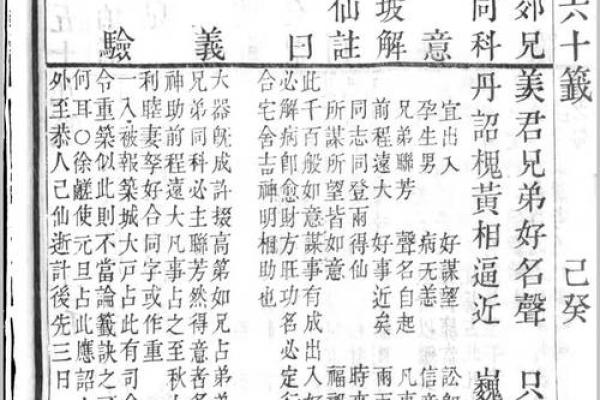 六十籤 己癸
郊兄 羙君兄弟好名聲 只
同科 丹詔槐黃相逼近 巍
意 宜出入 好謀望 訟
孕生男 病无恙 信
坡解 兄弟聯芳 聲名自起 凡事
前程遠大 好事近矣 雨
仙註 同志同登兩得仙 時
所謀所望皆如意 福
曰 此千百般如意謀事有成出入好
必解病即愈財方旺功名必定行
合宅舍吉神明相助也
義 大器旣成許掇高第如兄占弟弟
兄弟同科必主聯芳然得意者
神助前程遠大凡事占之至秋
利睦妻孥好合同字或作重
驗 一入被報築城大戸占此有司
令重築似此則不當論籤訣之
何耳〇徐鹺使元旦占此應詔
外至恭人已仙逝計後先三日